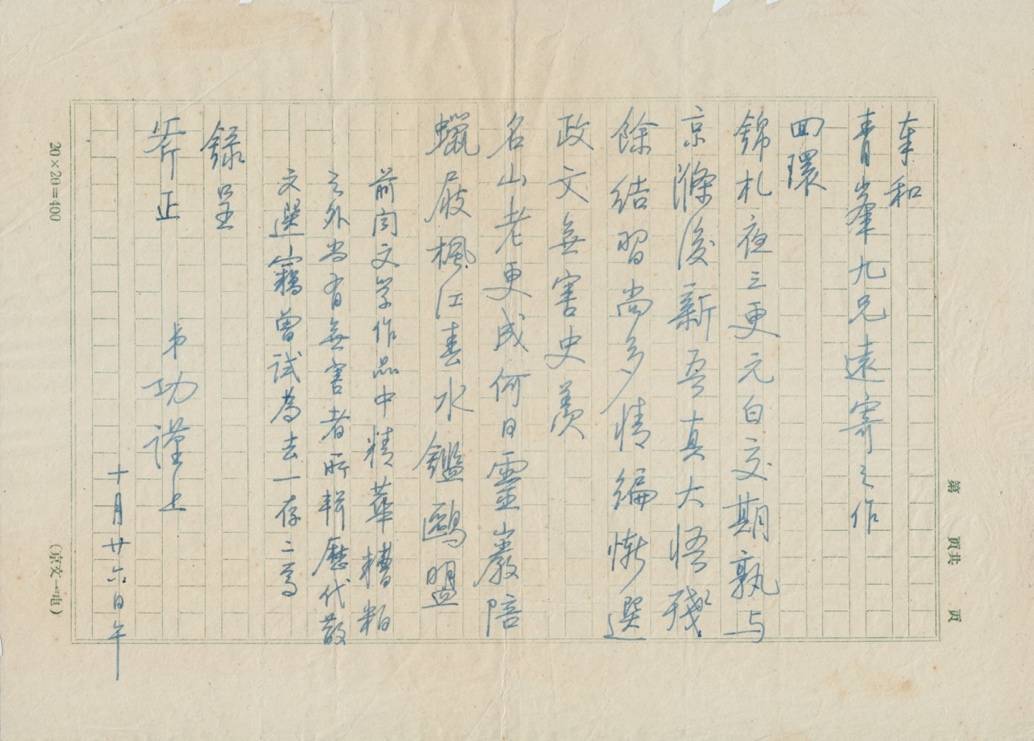 第　页共　页
奉和
青峯九兄遠寄之作
囬環
錦札夜三更元白交期孰与
京滌後新吾真大悟殘
餘結習尚多情編慚選
政文無害史羨
名山老更成何日靈巖陪
蠟屐楓江春水鑑鷗盟
前闻文学作品中精華糟粕
之外尚有無害者所輯歷代散
文選竊曾試為去一存二焉
録呈
斧正　弟功謹上
十月廿六日午
20×20=400　（京文一电）